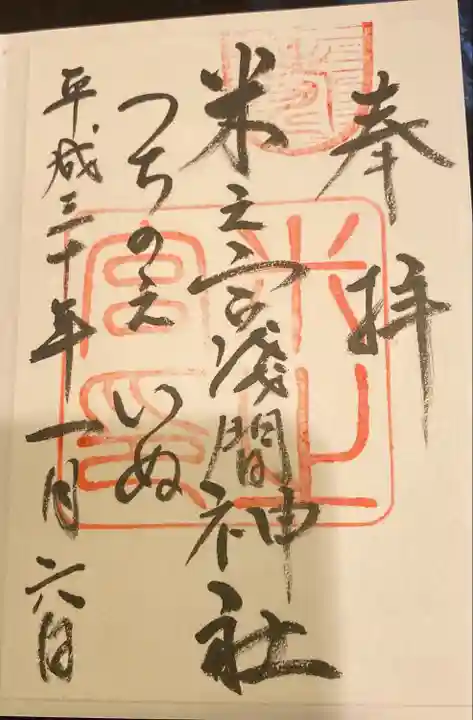 奉拝
米之宮浅間神社
つちのえ いぬ
平成三十年一月六日
米之宮印